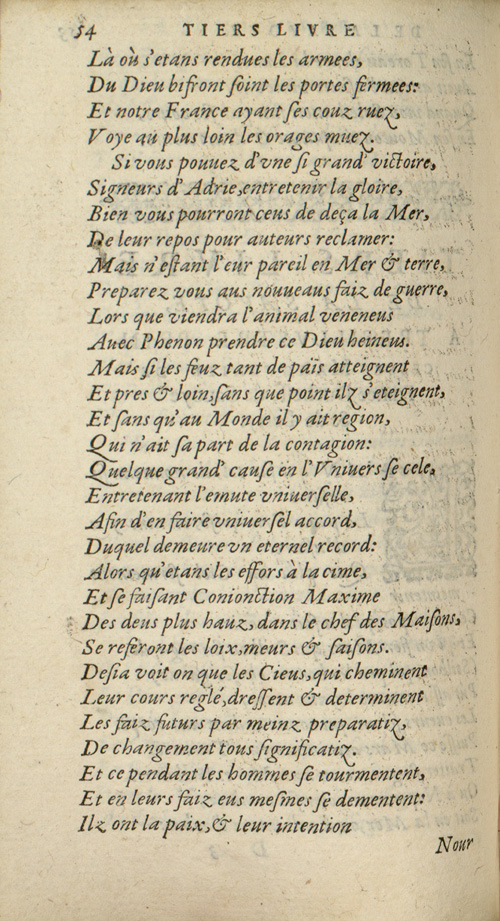 54 TIERS LIVRE
Là où s'etans rendues les armees,
Du Dieu bifront soint les portes fermees:
Et notre France ayant ses couz ruez,
Voye au plus loin les orages muez.
Si vous pouuez d'vne si grand' victoire,
Signeurs d'Adrie, entretenir la gloire,
Bien vous pourront ceus de deça la Mer,
De leur repos pour auteurs reclamer:
Mais n'estant l'eur pareil en Mer & terre,
Preparez vous aus nouueaus faiz de guerre,
Lors que viendra l'animal veneneus
Auec Phenon prendre ce Dieu heineus.
Mais si les feuz tant de païs atteignent
Et pres & loin, sans que point ilz s'eteignent,
Et sans qu'au Monde il y ait region,
Qui n'ait sa part de la contagion:
Quelque grand' cause en l'Vniuers se cele,
Entretenant l'emute vniuerselle,
Afin d'en faire vniuersel accord,
Duquel demeure vn eternel record:
Alors qu'etans les effors à la cime,
Et se faisant Conionction Maxime
Des deus plus hauz, dans le chef des Maisons,
Se referont les loix, meurs & saisons.
Desia voit on que les Cieus, qui cheminent
Leur cours reglé, dressent & determinent
Les faiz futurs par meinz preparatiz,
De changement tous significatiz.
Et ce pendant les hommes se tourmentent,
Et en leurs faiz eus mesmes se dementent:
Ilz ont la paix, & leur intention
Nour